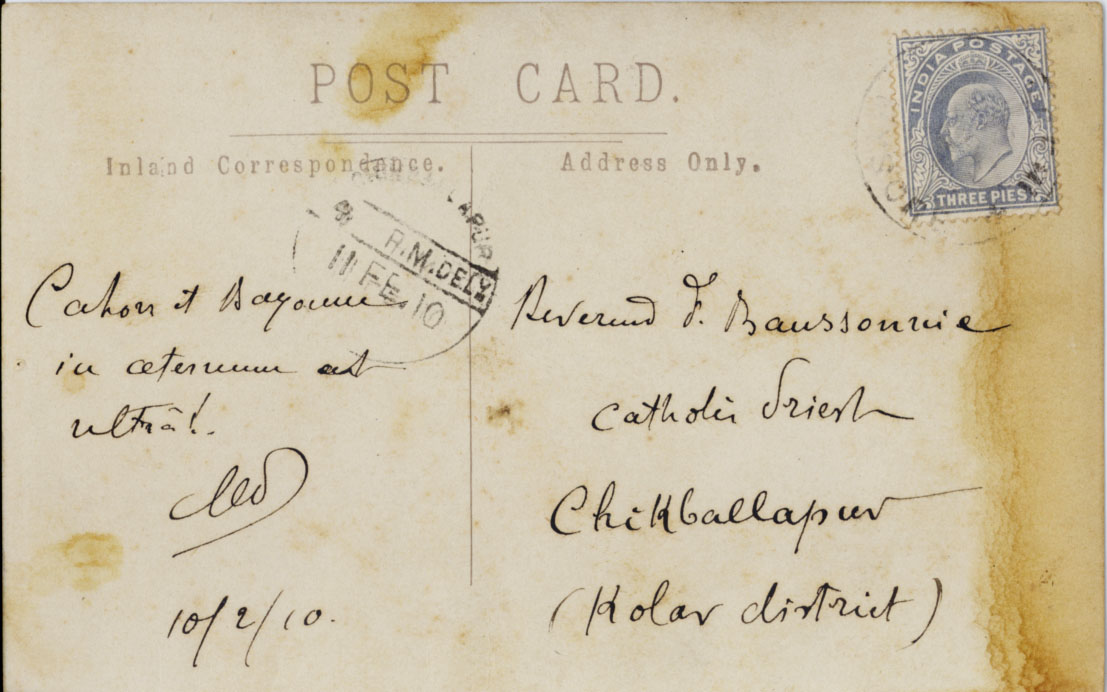 POST CARD.
Inland Correspondence.
Address Only.
INDIA POSTAGE
THREE PIES
R.M.DELY.
11 FE.10
Cahors et Bayonne
in æternum et
ultrā!.
10/2/10.
Reverend F. Baussonnie
Catholic Priest
Chikballapur
(Kolar district)